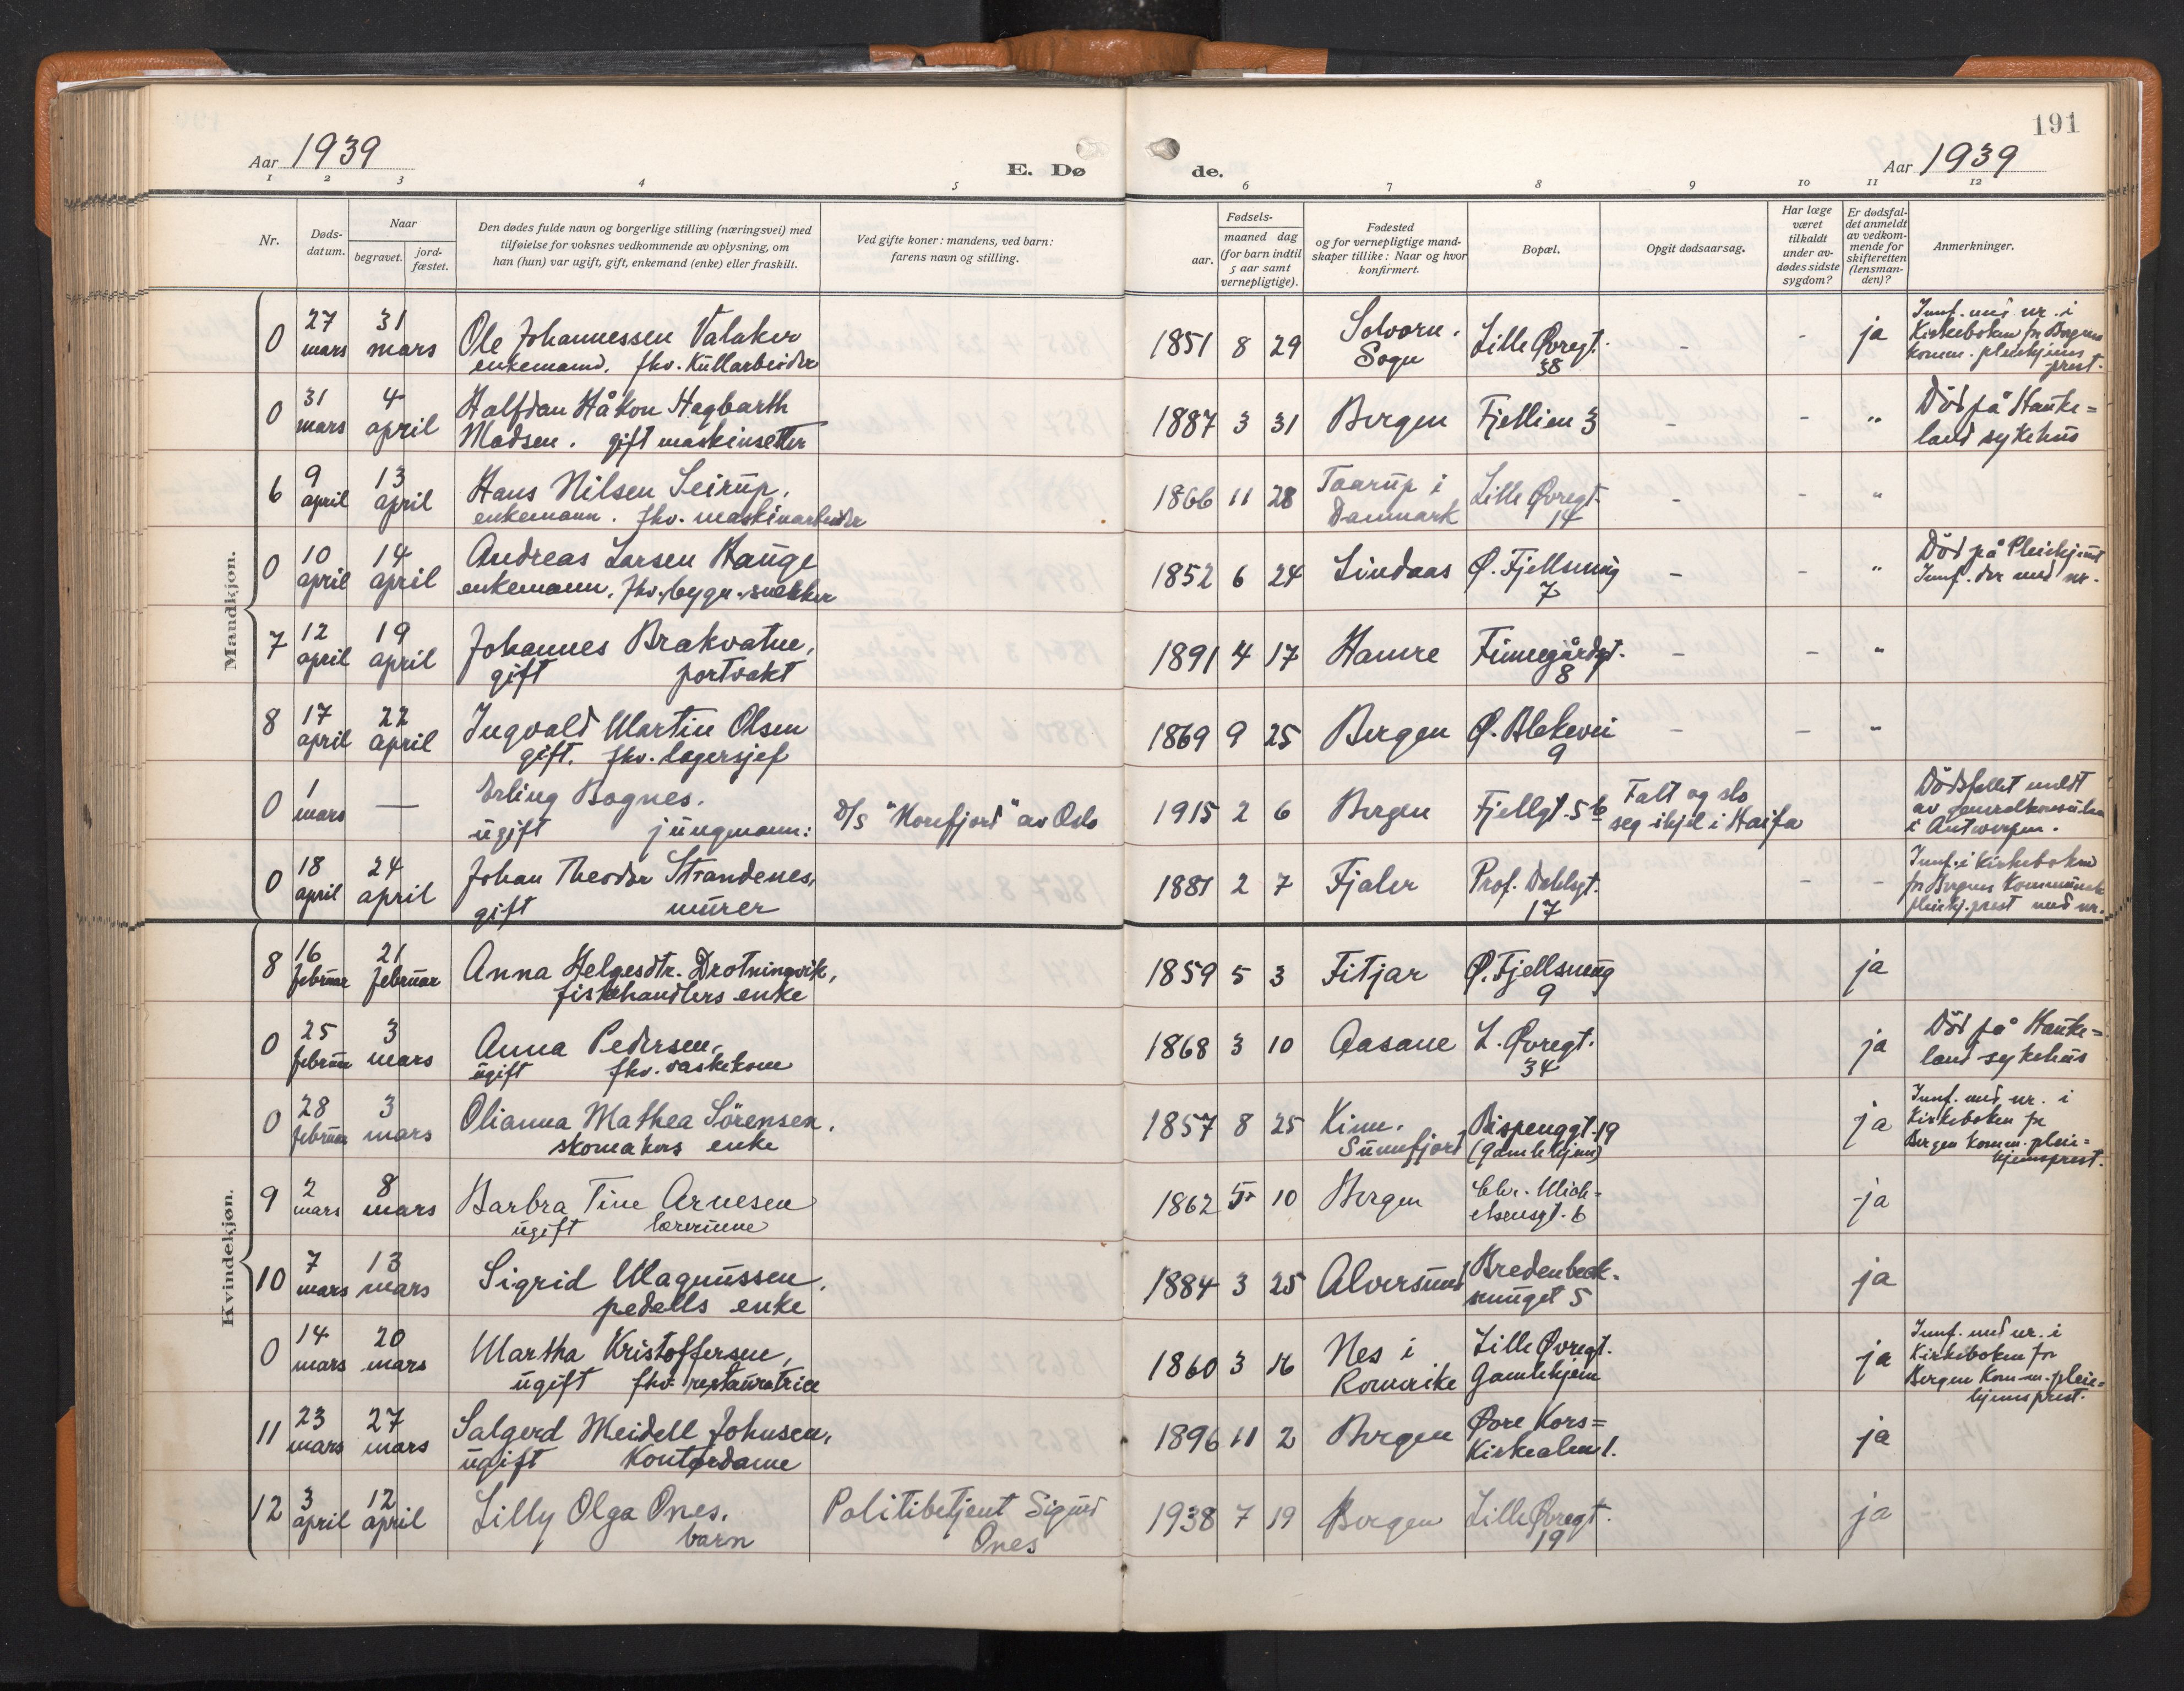 191
Aar 1939
E. Dø
de.
Aar 1939
1 2 3 4 5 6 7 8 9 10 11 12
Nr.
Døds-
datum.
Naar
begravet.
jord-
fæstet.
Den dødes fulde navn og borgerlige stilling (næringsvei) med
tilføielse for voksnes vedkommende av oplysning, om
han (hun) var ugift, gift, enkemand (enke) eller fraskilt.
Ved gifte koner: mandens, ved barn:
farens navn og stilling.
Fødsels-
aar.
maaned dag
(for barn indtil
5 aar samt
vernepligtige).
Fødested
og for vernepligtige mand-
skaper tillike: Naar og hvor
konfirmert.
Bopæl.
Opgit dødsaarsag.
Har læge
været
tilkaldt
under av-
dødes sidste
sygdom?
Er dødsfal-
det anmeldt
av vedkom-
mende for
skifteretten
(lensman-
den)?
Anmerkninger.
Mandkjøn.
0 27 mars 31 mars Ole Johannessen Valaker
enkemand. fhv. Kullarbeider
1851 8 29 Solvorn. Sogn Lille Øvregt. 38 - - ja
Innf. med nr. i
Kirkeboken for Bergens
komm. pleiehjems
prest.
0 31 mars 4 april Halfdan Håkon Hagbarth
Madsen. gift maskinsetter
1887 3 31 Bergen Fjellien 3 - - "
Död på Hauke=
land sykehus
6 9 april 13 april Hans Nilsen Seirup.
enkemann. fhv. maskinarbeider
1866 11 28 Taarup i Danmark Lille Øvregt. 14 - - "
0 10 april 14 april Andreas Larsen Hauge
enkemann. fhv. bygn. snekker
1852 6 24 Lindaas Ø. Fjellsmug 7 - - "
Död på Pleiehjemmet
Innf. der med nr.
7 12 april 19 april Johannes Brakvatne,
gift portvakt
1891 4 17 Hamre Finnegårdgt. 8 - - "
8 17 april 22 april Ingvald Martin Olsen
gift. fhv. lagersjef
1869 9 25 Bergen Ø. Blekevei 9 - - "
0 1 mars — Erling Bognes.
ugift jungmann:
D/s "Norefjord" av Oslo
1915 2 6 Bergen Fjellgt. 5b
Falt og slo
seg ihjel i Haifa
Dödsfallet meldt
av generalkonsulen
i Antwerpen.
0 18 april 24 april Johan Theodor Strandenes,
gift murer
1881 2 7 Fjaler Prof. Dahlsgt. 17 - -
Innf. i Kirkeboken
for Bergens Kommunes
pleiehj. prest med nr.
Kvindekjøn.
8 16 februar 21 februar Anna Helgesdtr. Drotningvik,
fiskehandlers enke
1859 5 3 Fitjar Ø. Fjellsmug 9 ja
0 25 februar 3 mars Anna Pedersen,
ugift fhv. vaskekone
1868 3 10 Aasane L. Øvregt. 34 ja
Död på Hauke=
land sykehus
0 28 februar 3 mars Olianna Mathea Sörensen.
skomakers enke
1857 8 25 Kinn. Sunnfjord Bispenggt. 19 (Gamlehjem) ja
Innf. med nr. i
Kirkeboken for
Bergen Komm. pleie=
hjemsprest.
9 2 mars 8 mars Barbra Tine Arnesen
ugift lærerinne
1862 5 10 Bergen Chr. Mich=
elsensgt. 6 ja
10 7 mars 13 mars Sigrid Magnussen.
pedells enke
1884 3 25 Alversund Bredenbeck.
smuget 5 ja
0 14 mars 20 mars Martha Kristoffersen,
ugift fhv. restauratrice
1860 3 16 Nes i Romerike Lille Øvregt. Gamlehjem ja
Innf. med nr. i
Kirkeboken for
Bergen Komm. pleie=
hjemsprest.
11 23 mars 27 mars Salgerd Meidell Johnsen,
ugift Kontordame
1896 11 2 Bergen Øvre Kors=
Kirkealm. 1. ja
12 3 april 12 april Lilly Olga Ones.
barn
Politibetjent Sigurd
Ones
1938 7 19 Bergen Lille Øvregt. 19 ja